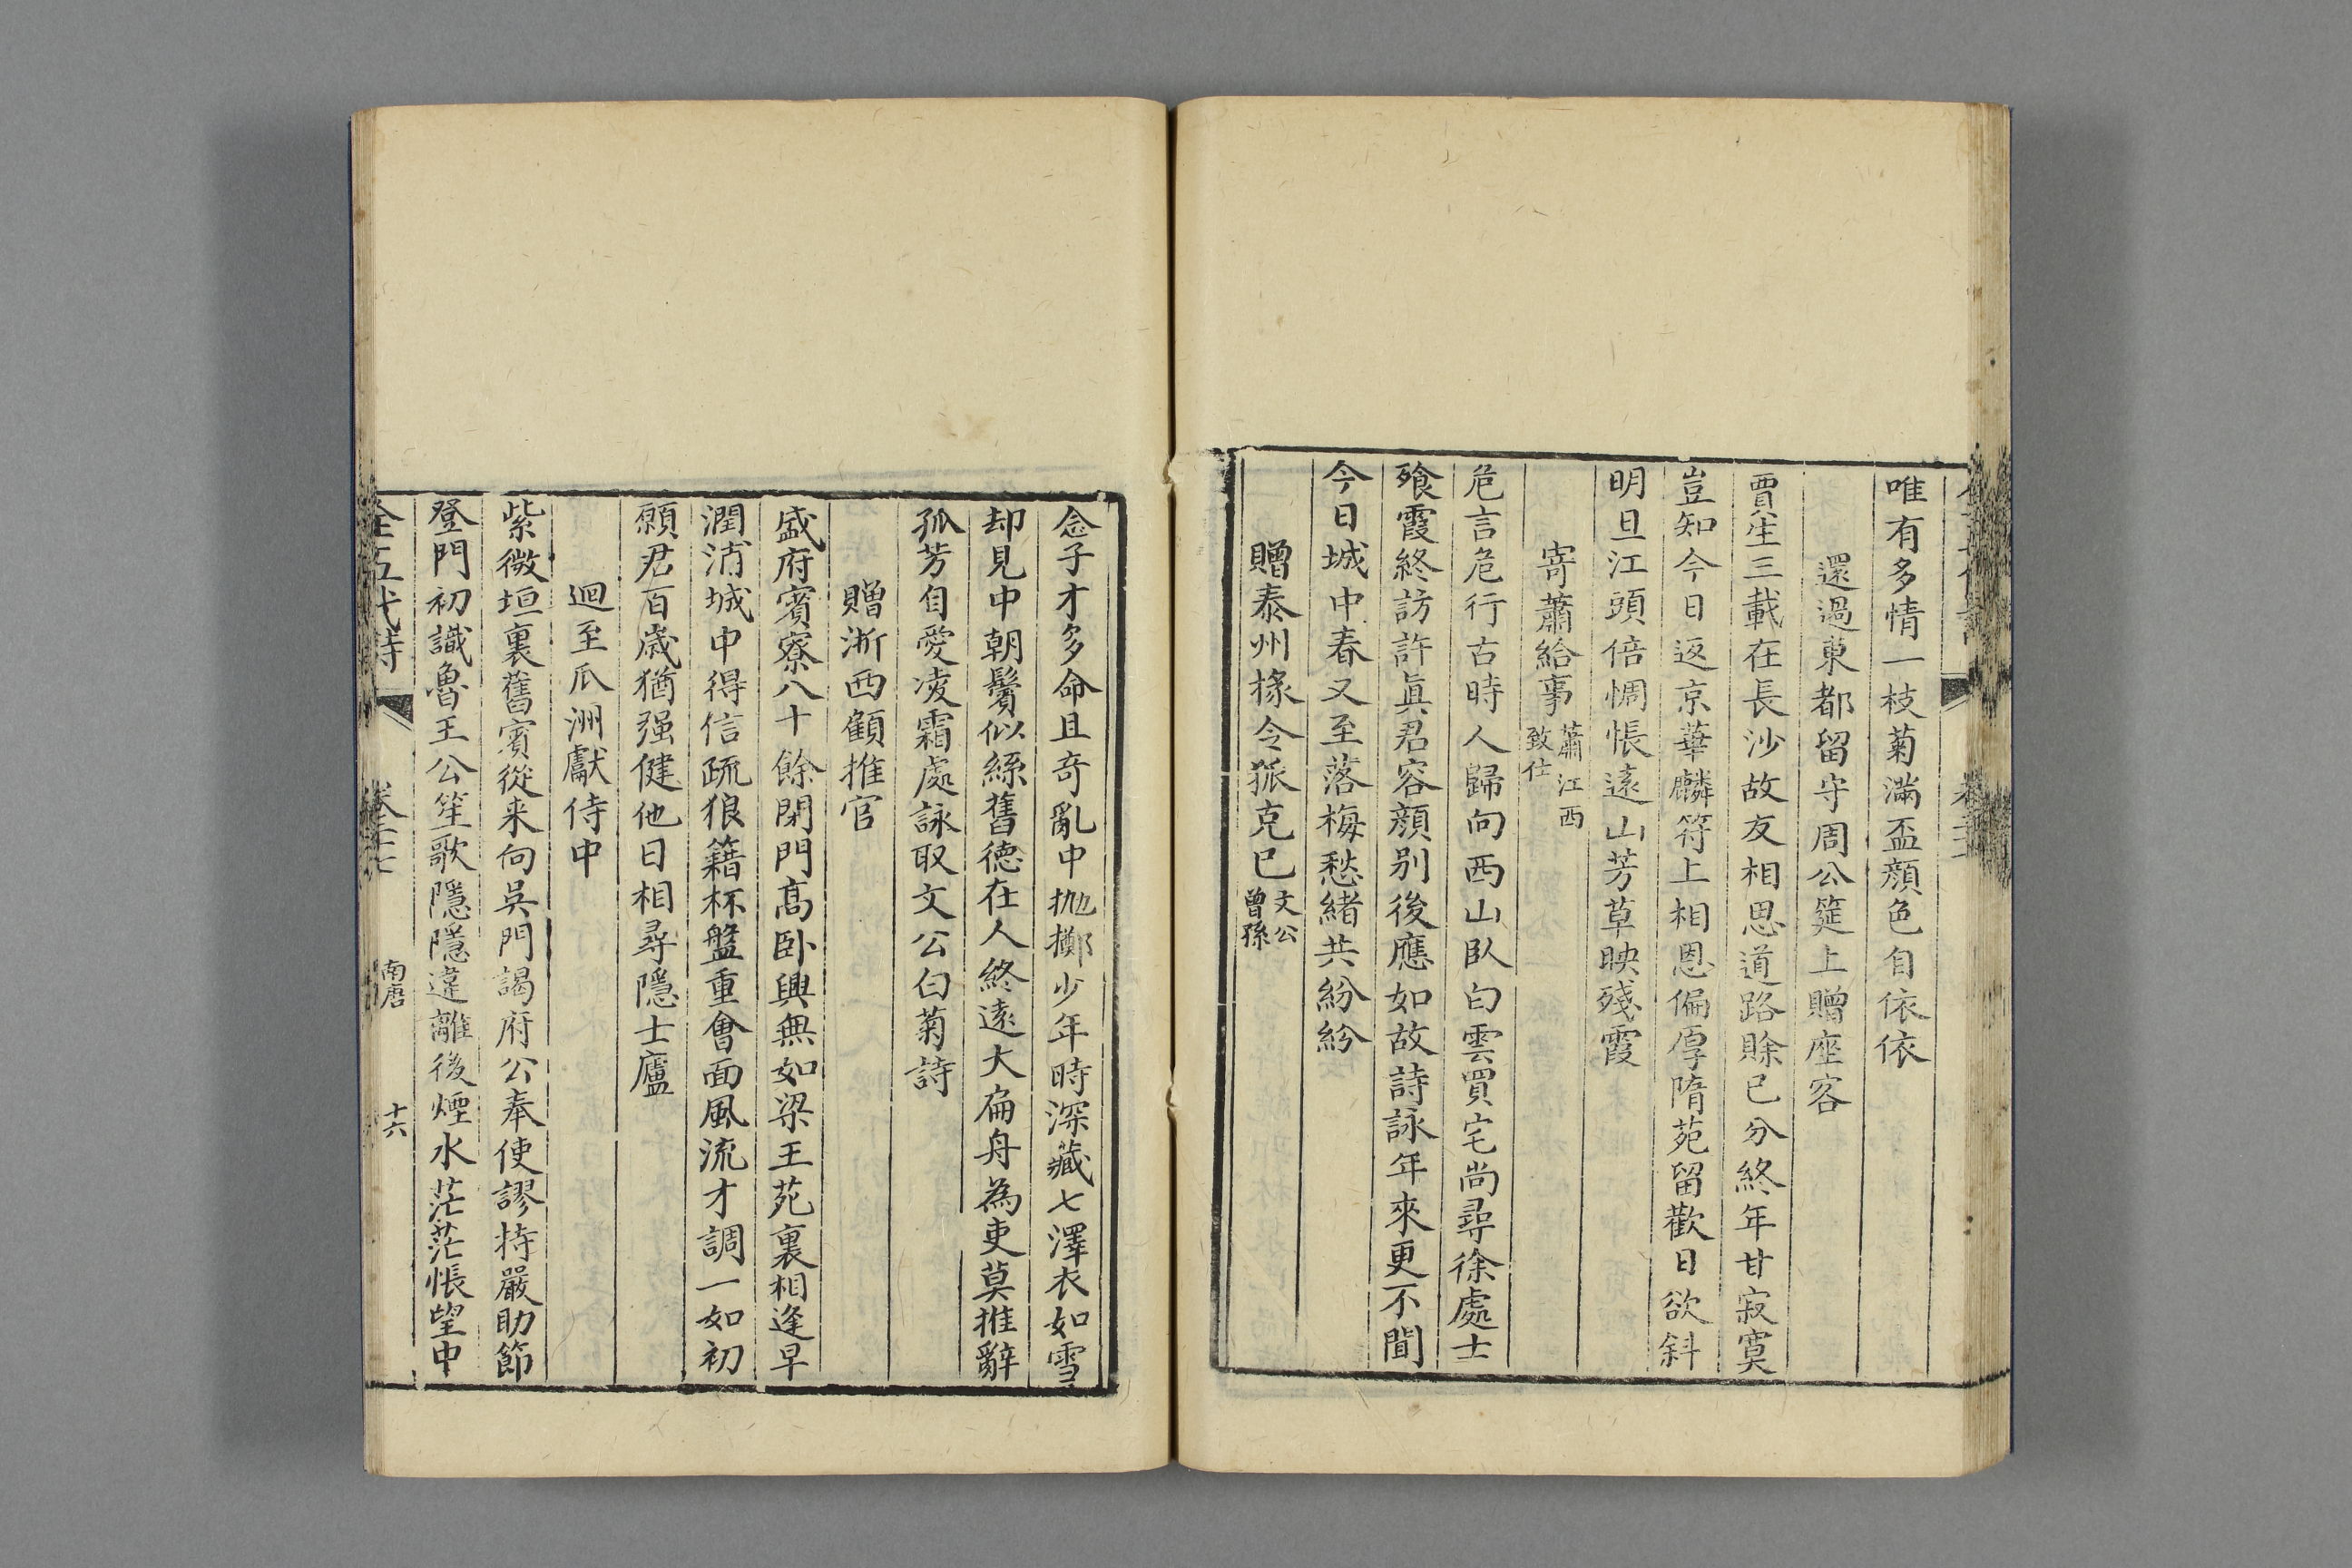 唯有多情一枝菊滿盃顏色自依依
還過東都留守周公筵上贈座客
賈生三載在長沙故友相思道路賒已分終年甘寂寞
豈知今日返京華麟符上相恩偏厚隋苑留歡日欲斜
明旦江頭倍惆悵遠山芳草映殘霞
寄蕭給事蕭江西致仕
危言危行古時人歸向西山臥白雲買宅尚尋徐處士
飱霞終訪許眞君容顏别後應如故詩詠年來更不聞
今日城中春又至落梅愁緒共紛紛
贈泰州掾令狐克已文公曾孫
念子才多命且奇亂中抛擲少年時深藏七澤衣如雪
却見中朝鬢似絲舊德在人終遠大扁舟為吏莫推辭
孤芳自愛凌霜處詠取文公白菊詩
贈浙西顧推官
盛府賓寮八十餘閉門髙卧興無如梁王苑裏相逢早
潤浦城中得信疏狼籍杯盤重會面風流才調一如初
願君百歲猶强健他日相尋隱士廬
迴至瓜洲獻侍中
紫微垣裏舊賓從来向吳門謁府公奉使謬持嚴助節
登門初識魯王公笙歌隱隱違離後煙水茫茫悵望中
全五代詩 南唐 十六